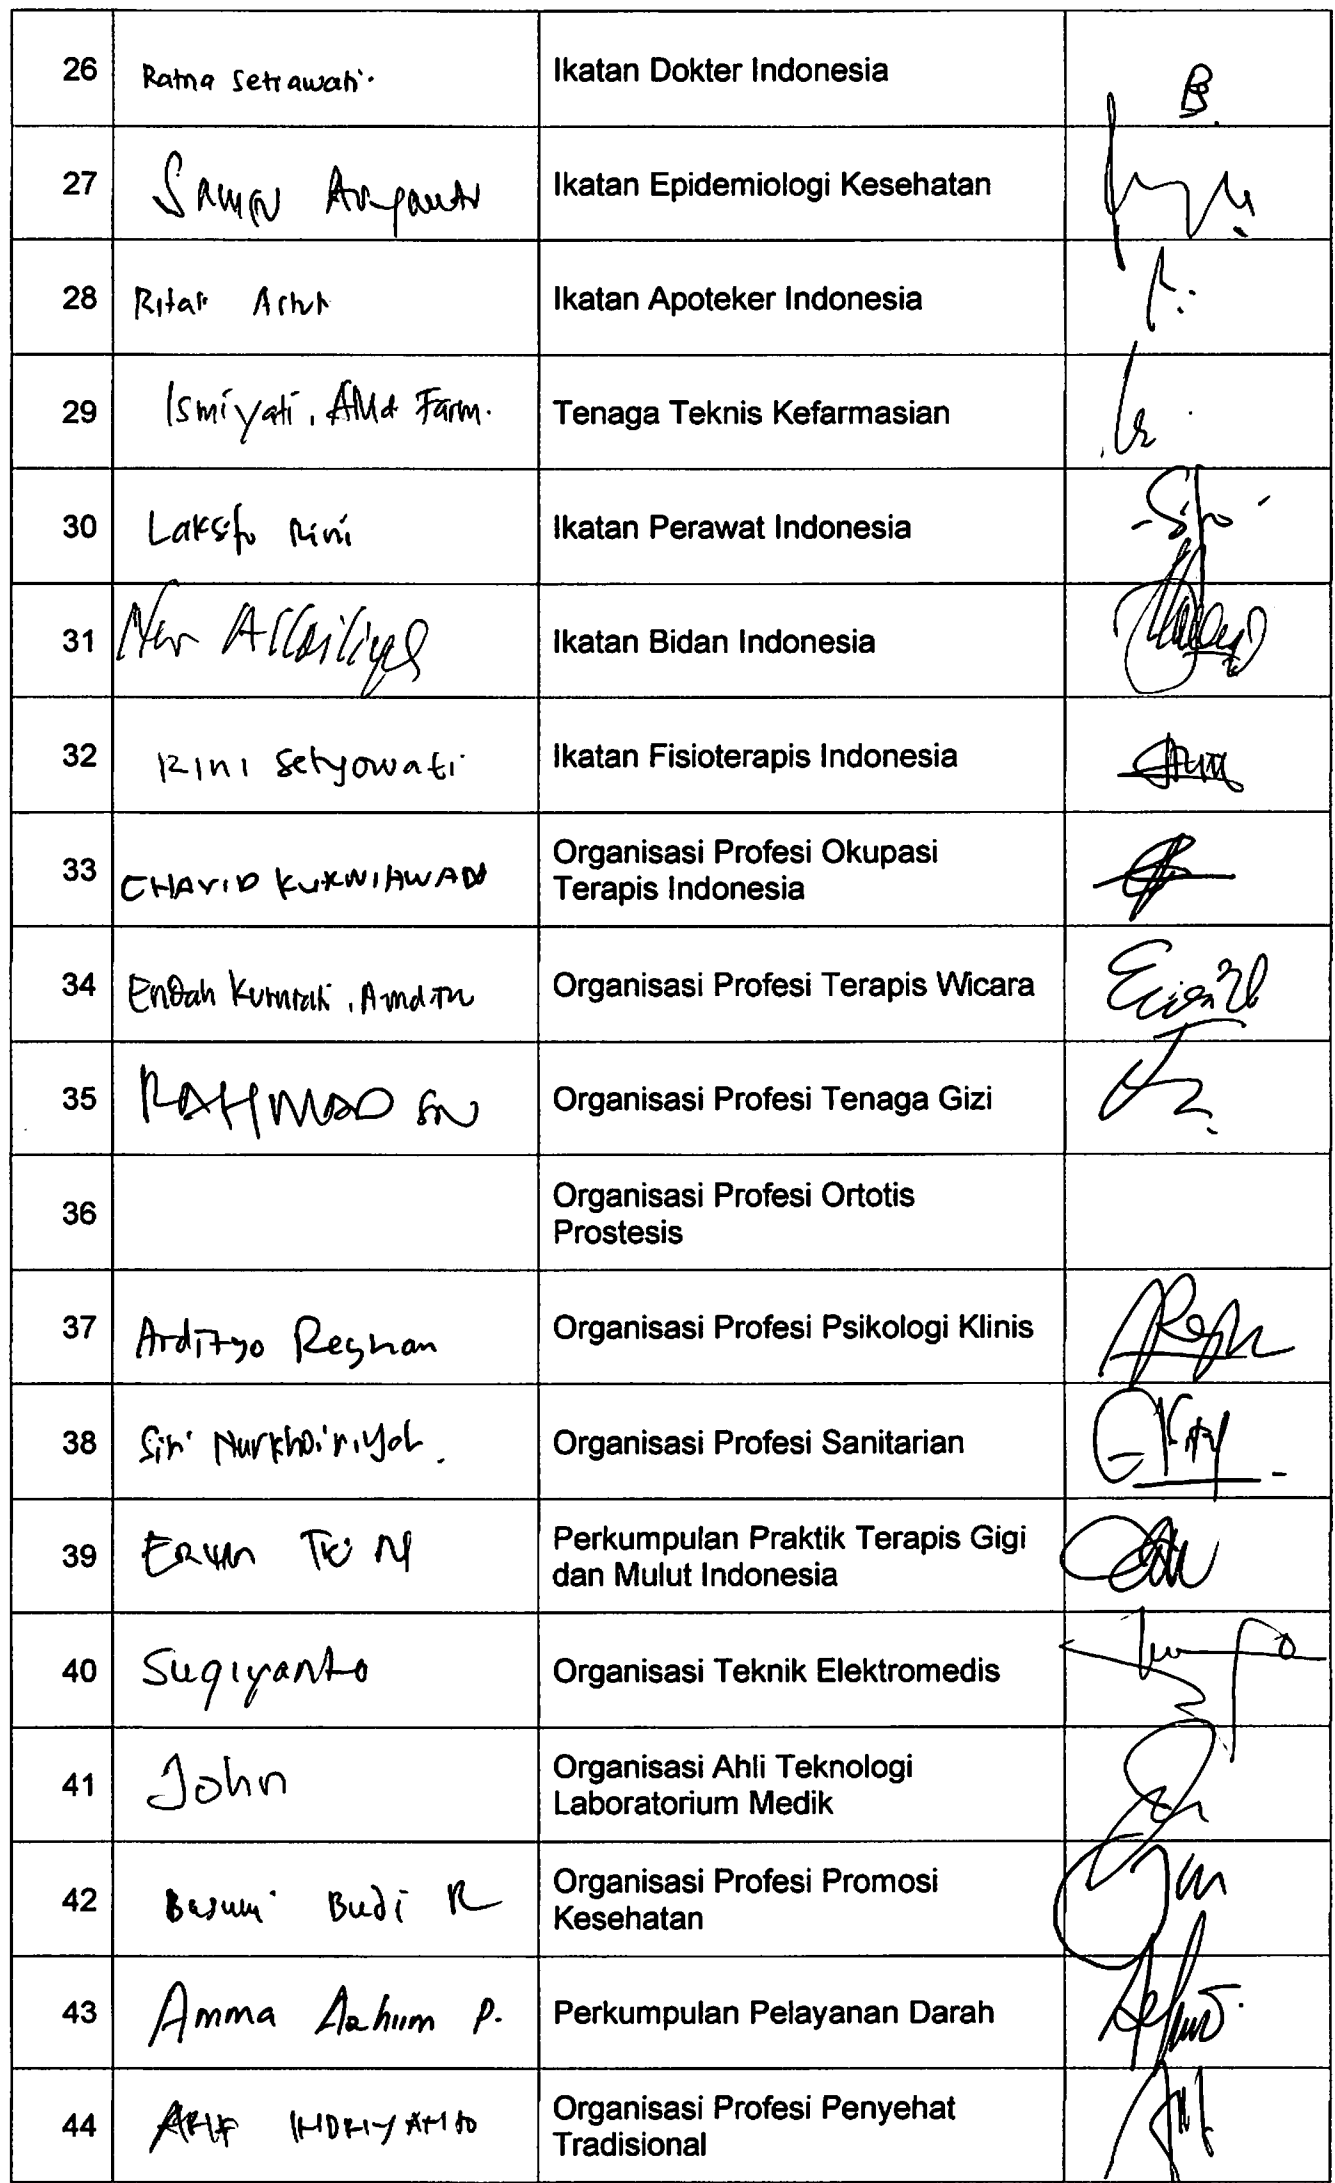 26 Ratna Setiawati. Ikatan Dokter Indonesia
27 Ikatan Epidemiologi Kesehatan
28 Ikatan Apoteker Indonesia
29 Ismiyati, AMd Farm. Tenaga Teknis Kefarmasian
30 Rini Ikatan Perawat Indonesia
31 Nur Ikatan Bidan Indonesia
32 Rini Setyowati Ikatan Fisioterapis Indonesia
33 CHAVID KURNIAWAN Organisasi Profesi Okupasi
Terapis Indonesia
34 Endah Organisasi Profesi Terapis Wicara
35 RAHMAD Organisasi Profesi Tenaga Gizi
36 Organisasi Profesi Ortotis
Prostesis
37 Ardityo Regnan Organisasi Profesi Psikologi Klinis
38 Siti Nurkhoiriyah. Organisasi Profesi Sanitarian
39 Perkumpulan Praktik Terapis Gigi
dan Mulut Indonesia
40 Sugiyanto Organisasi Teknik Elektromedis
41 John Organisasi Ahli Teknologi
Laboratorium Medik
42 Budi R Organisasi Profesi Promosi
Kesehatan
43 Amma P. Perkumpulan Pelayanan Darah
44 ARIF INDRIYANTO Organisasi Profesi Penyehat
Tradisional